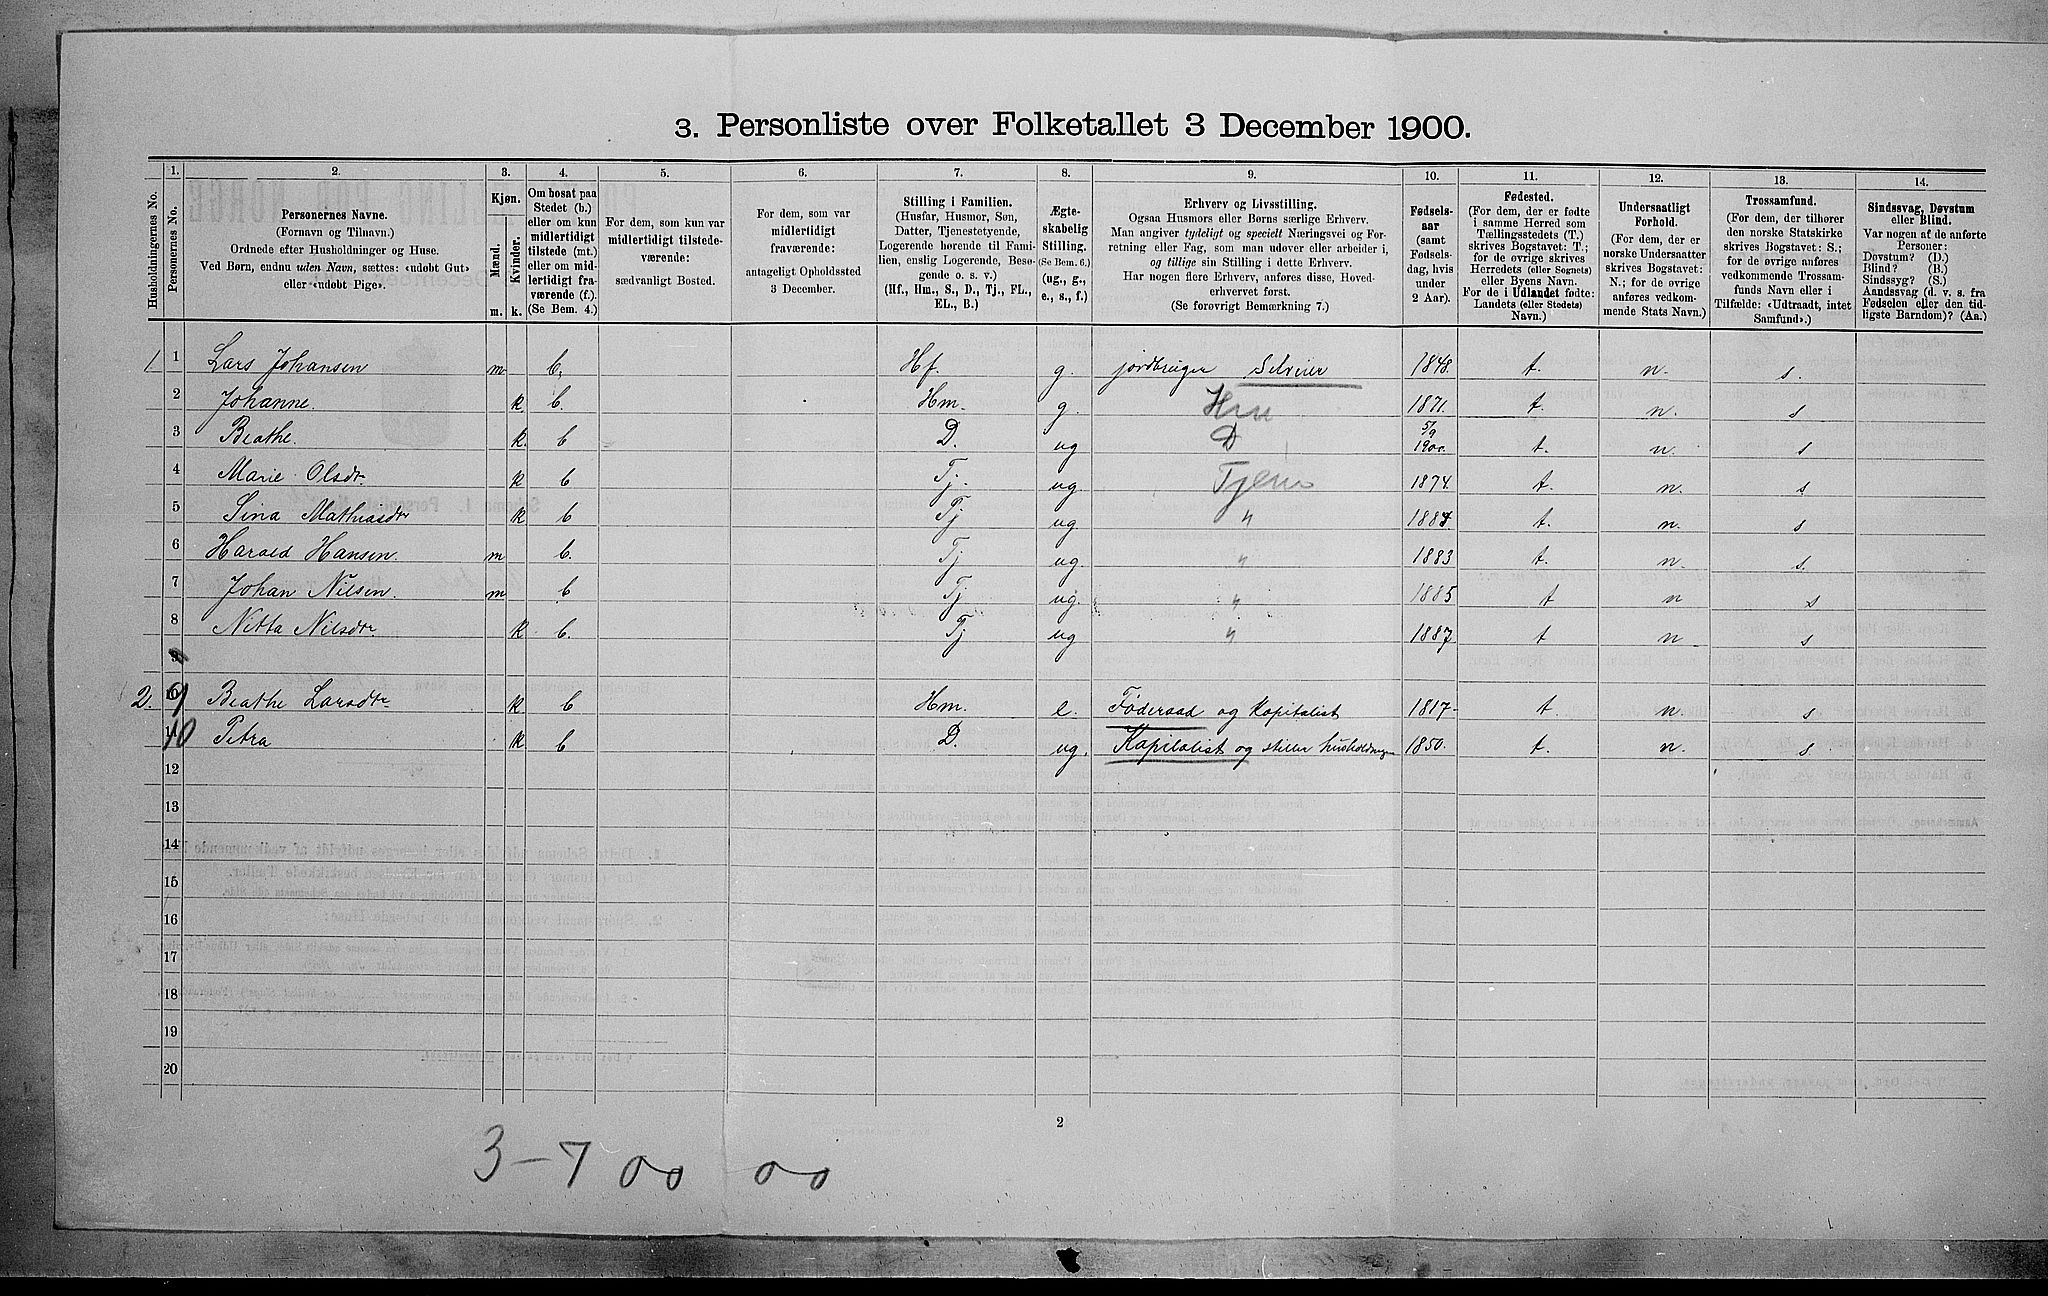 3. Personliste over Folketallet 3 December 1900.
Husholdningernes No.
1.
Personernes No.
2.
Personernes Navne.
(Fornavn og Tilnavn.)
Ordnede efter Husholdninger og Huse.
Ved Børn, endnu uden Navn, sættes: «udøbt Gut»
eller «udøbt Pige».
3.
Kjøn.
Mænd.
Kvinder.
m. k.
4.
Om bosat paa
Stedet (b.)
eller om kun
midlertidigt
tilstede (mt.)
eller om mid-
lertidigt fra-
værende (f.).
(Se Bem. 4.)
5.
For dem, som kun var
midlertidigt tilstede-
værende:
sædvanligt Bosted.
6.
For dem, som var
midlertidigt
fraværende:
antageligt Opholdssted
3 December.
7.
Stilling i Familien.
(Husfar, Husmor, Søn,
Datter, Tjenestetyende,
Logerende hørende til Fami-
lien, enslig Logerende, Besø-
gende o. s. v.)
(Hf., Hm., S., D., Tj., FL.,
EL., B.)
8.
Ægte-
skabelig
Stilling.
(Se Bem. 6.)
(ug., g.,
e., s., f.)
9.
Erhverv og Livsstilling.
Ogsaa Husmors eller Børns særlige Erhverv.
Man angiver tydeligt og specielt Næringsvei og For-
retning eller Fag, som man udøver eller arbeider i,
og tillige sin Stilling i dette Erhverv.
Har nogen flere Erhverv, anføres disse, Hoved-
erhvervet først.
(Se forøvrigt Bemærkning 7.)
10.
Fødsels-
aar
(samt
Fødsels-
dag, hvis
under
2 Aar).
11.
Fødested.
(For dem, der er fødte
i samme Herred som
Tællingsstedets (T.)
skrives Bogstavet: T.;
for de øvrige skrives
Herredets (eller Sognets)
eller Byens Navn.
For de i Udlandet fødte:
Landets (eller Stedets)
Navn.)
12.
Undersaatligt
Forhold.
(For dem, der er
norske Undersaatter
skrives Bogstavet:
N.; for de øvrige
anføres vedkom-
mende Stats Navn.)
13.
Trossamfund.
(For dem, der tilhører
den norske Statskirke
skrives Bogstavet: S.;
for de øvrige anføres
vedkommende Trossam-
funds Navn eller i
Tilfælde: «Udtraadt, intet
Samfund».)
14.
Sindssvag, Døvstum
eller Blind.
Var nogen af de anførte
Personer:
Døvstum? (D.)
Blind? (B.)
Sindssyg? (S.)
Aandssvag (d. v. s. fra
Fødselen eller den tid-
ligste Barndom)? (Aa.)
1 1 Lars Johansen m b. Hf. g. jordbruger Selveier 1848. t. n. s.
2 Johanne. k b. Hm. g. Hm 1871. t. n. s
3 Beathe. k. b D. ug D 5/9 1900. t. n. s
4 Marie Olsdr k b Tj. ug. Tjem 1874. t. n. s
5 Sina Mathiasdr k b Tj ug. " 1884. t. n. s
6 Harald Hansen. m b. Tj ug. " 1883 t. n. s.
7 Johan Nilsen. m b Tj ug. " 1885 t n s
8 Nitta Nilsdr k b. Tj ug " 1887 t n s
9
2. 10 9 Beathe Larsdr k b Hm. e. Føderaad og Kapitalist 1817 t n. s
11 10 Petra k b D. ug. Kapitalist og steller husholdningen 1850. t. n. s
12
13
14
15
16
17
18
19
20
2
3-7 00 00